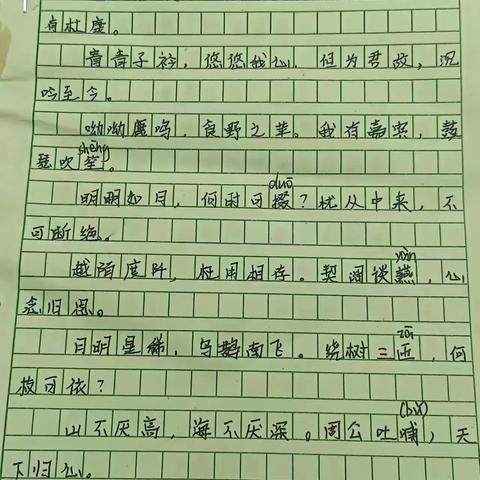 有杜康。
青青子衿，悠悠我心。但为君故，沉
吟至今。
呦呦鹿鸣，食野之苹。我有嘉宾，鼓
shēng
瑟吹笙。
duō
明明如月，何时可掇？忧从中来，不
可断绝。
yàn
越陌度阡，枉用相存。契阔谈讌，心
念旧恩。
zā
月明星稀，乌鹊南飞。绕树三匝，何
枝可依？
(bǔ)
山不厌高，海不厌深。周公吐哺，天
下归心。